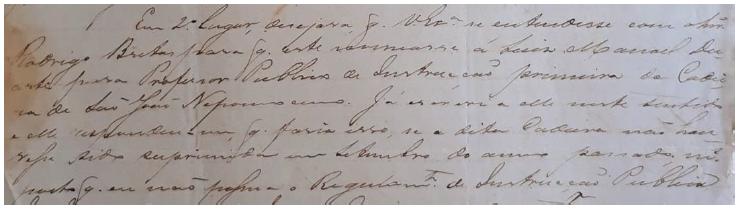 Em 2º lugar, desejára q. V. Exª se entendesse com o Snr.
Rodrigo Bretas para q. este nomeasse á Luis Manoel Du
arte para Professor Publico de Instrucção primeira da Cadei
ra de São João Nepomuceno. Já escrevi a elle neste sentido
e elle respondeu-me q. faria isso, se a dita Cadeira não hou
vesse sido suprimida em Setembro do anno passado,
q. eu não o Regulamto. de Instrucção Publica